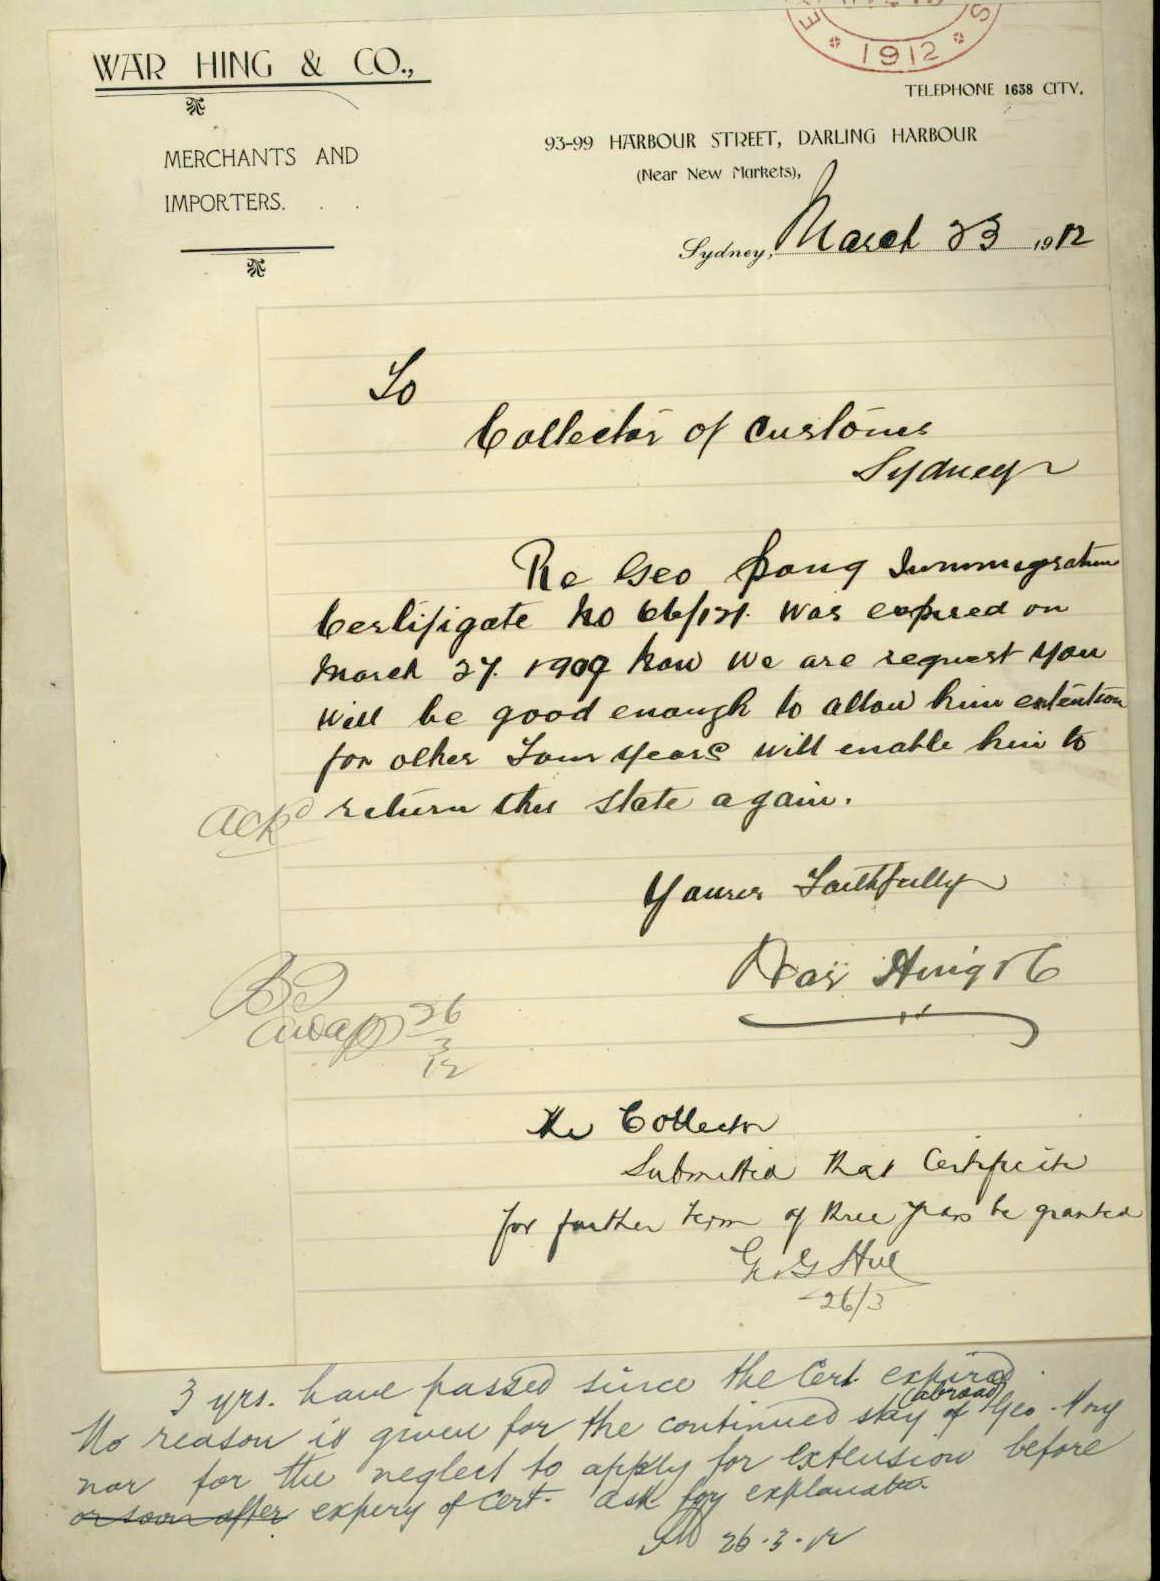 WAR HING & CO.,
MERCHANTS AND
IMPORTERS. . .
1912
TELEPHONE 1638 CITY.
93-99 HARBOUR STREET, DARLING HARBOUR
(Near New Markets),
Sydney, March 23 1912
To
Collector of Customs
Sydney
Re Geo Immigration
Certifigate No 06/121. Was expired on
March 27. 1909 Now We are request you
will be good enough to allow him extention
for other Four years will enable him to
return this state again.
Ackd
Yours Faithfully
War Hing & Co
26
3
12
The Collector
Submitted that Certificate
for further term of three years be granted
26/3
3 yrs. have passed since the Cert. expired.
(abroad)
No reason is given for the continued stay of Geo.
nor for the neglect to apply for extension before
or soon after expiry of Cert. ask for explanation.
26.3.12